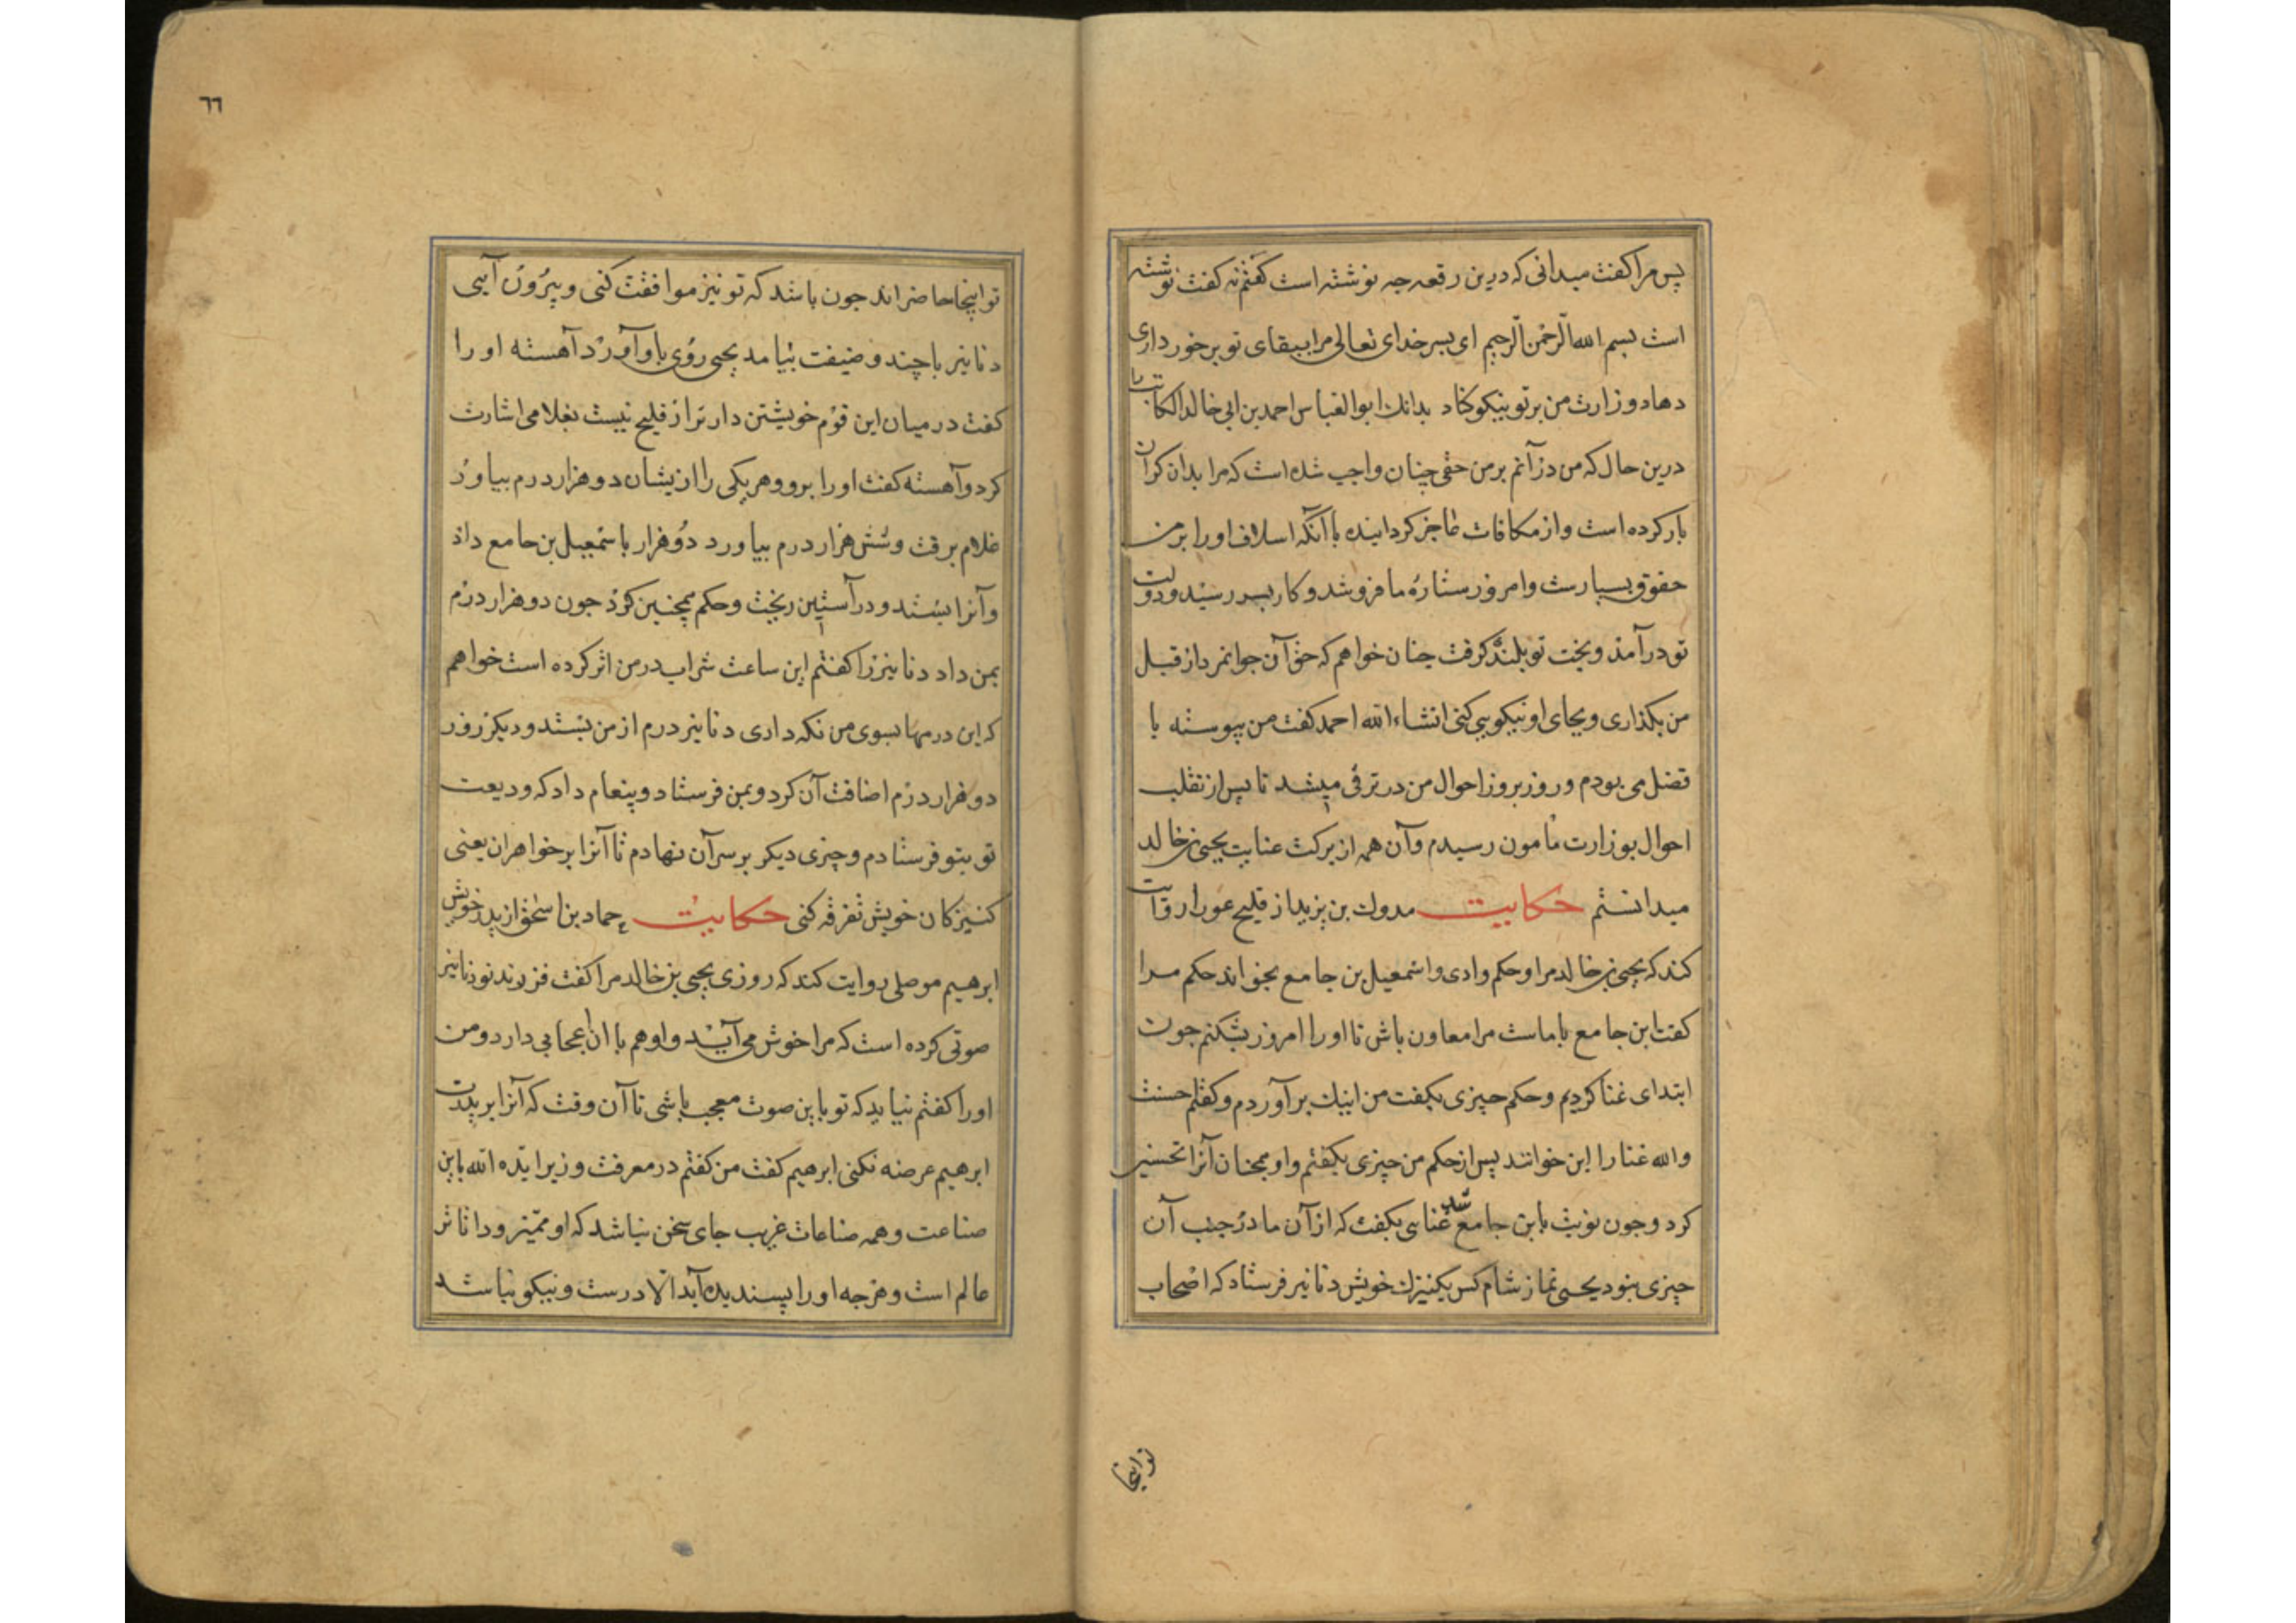 پس مرا کفت میدانی که درین رقعه جه نوشته است کفتم نه کفت نوشته
است بسم الله الرحمن الرحیم ای بسر خدای تعالی مرا ببقای تو برخورداری
دهاد و زارت من بر تو نیکو کناد بدانك ابو العباس احمد بن ابی خالد الکاتب را
درین حال که من در آنم بر من حقی چنان واجب شده است که مرا بدان کران
بار کرده است و از مکافات عاجز کردانیده با آنکه اسلاف او را بر من
حقوق بسیارست و امروز ستارهٔ ما فرو شد و کار بسر رسید و دولت
تو در آمد و بخت تو بلند کرفت چنان خواهم که حق آن جوانمرد از قبل
من بکذاری و بجای او نیکویی کنی انشاء الله احمد کفت من پیوسته با
فضل می بودم و روز بروز احوال من در ترقی میشد تا پس از تقلب
احوال بوزارت مامون رسیدم و آن همه از برکت عنایت یحیی بن خالد
میدانستم حکایت مدوك بن یزید از فلیح عورا روایت
کند که یحیی بن خالد مرا و حکم وادی و اسمعیل بن جامع بخواند حکم مرا
کفت ابن جامع با ماست مرا معاون باش تا او را امروز بشکنم جون
ابتدای غنا کردیم و حکم چیزی بکفت من اینك بر آوردم و کفتم احسنت
والله غنا را این خوانند پس از حکم من چیزی بکفتم و او همچنان آنرا تحسین
کرد و جون نوبت بابن جامع شد غنایی بکفت که از آن ما در جنب آن
چیزی نبود یحیی نماز شام کس بکنیزك خویش دنانیر فرستاد که اصحاب
تو اینجا
٦٦
تو اینجا حاضراند جون باشد که تو نیز موافقت کنی و بیرون آیی
دنانیر با چند وصیفت بیامد یحیی روی باو آورد آهسته او را
کفت در میان این قوم خویشتن دارتر از فلیح نیست بغلامی اشارت
کرد و آهسته کفت او را برو و هر یکی را ازیشان دو هزار درم بیاور
غلام برفت و شش هزار درم بیاورد دو هزار باسمعیل بن جامع داد
و آنرا بستد و در آستین ریخت و حکم همچنین کرد جون دو هزار درم
بمن داد دنانیر را کفتم این ساعت شراب در من اثر کرده است خواهم
که این درمها بسوی من نکه داری دنانیر درم از من بستد و دیکر روز
دو هزار درم اضافت آن کرد و بمن فرستاد و پیغام داد که ودیعت
تو بتو فرستادم و چیزی دیکر بر سر آن نهادم تا آنرا بر خواهران یعنی
کنیزکان خویش تفرقه کنی حکایت حماد بن اسحق از پدر خویش
ابرهیم موصلی روایت کند که روزی یحیی بن خالد مرا کفت فرزند تو دنانیر
صوتی کرده است که مرا خوش می آید و او هم با ان اعجابی دارد و من
او را کفتم نباید که تو باین صوت معجب باشی تا آن وقت که آنرا بر پدرت
ابرهیم عرضه نکنی ابرهیم کفت من کفتم در معرفت وزیر ایده الله باین
صناعت و همه صناعات غریب جای سخن نباشد که او ممیز و داناتر
عالم است و هرجه او را پسندیده آید الا درست و نیکو نباشد